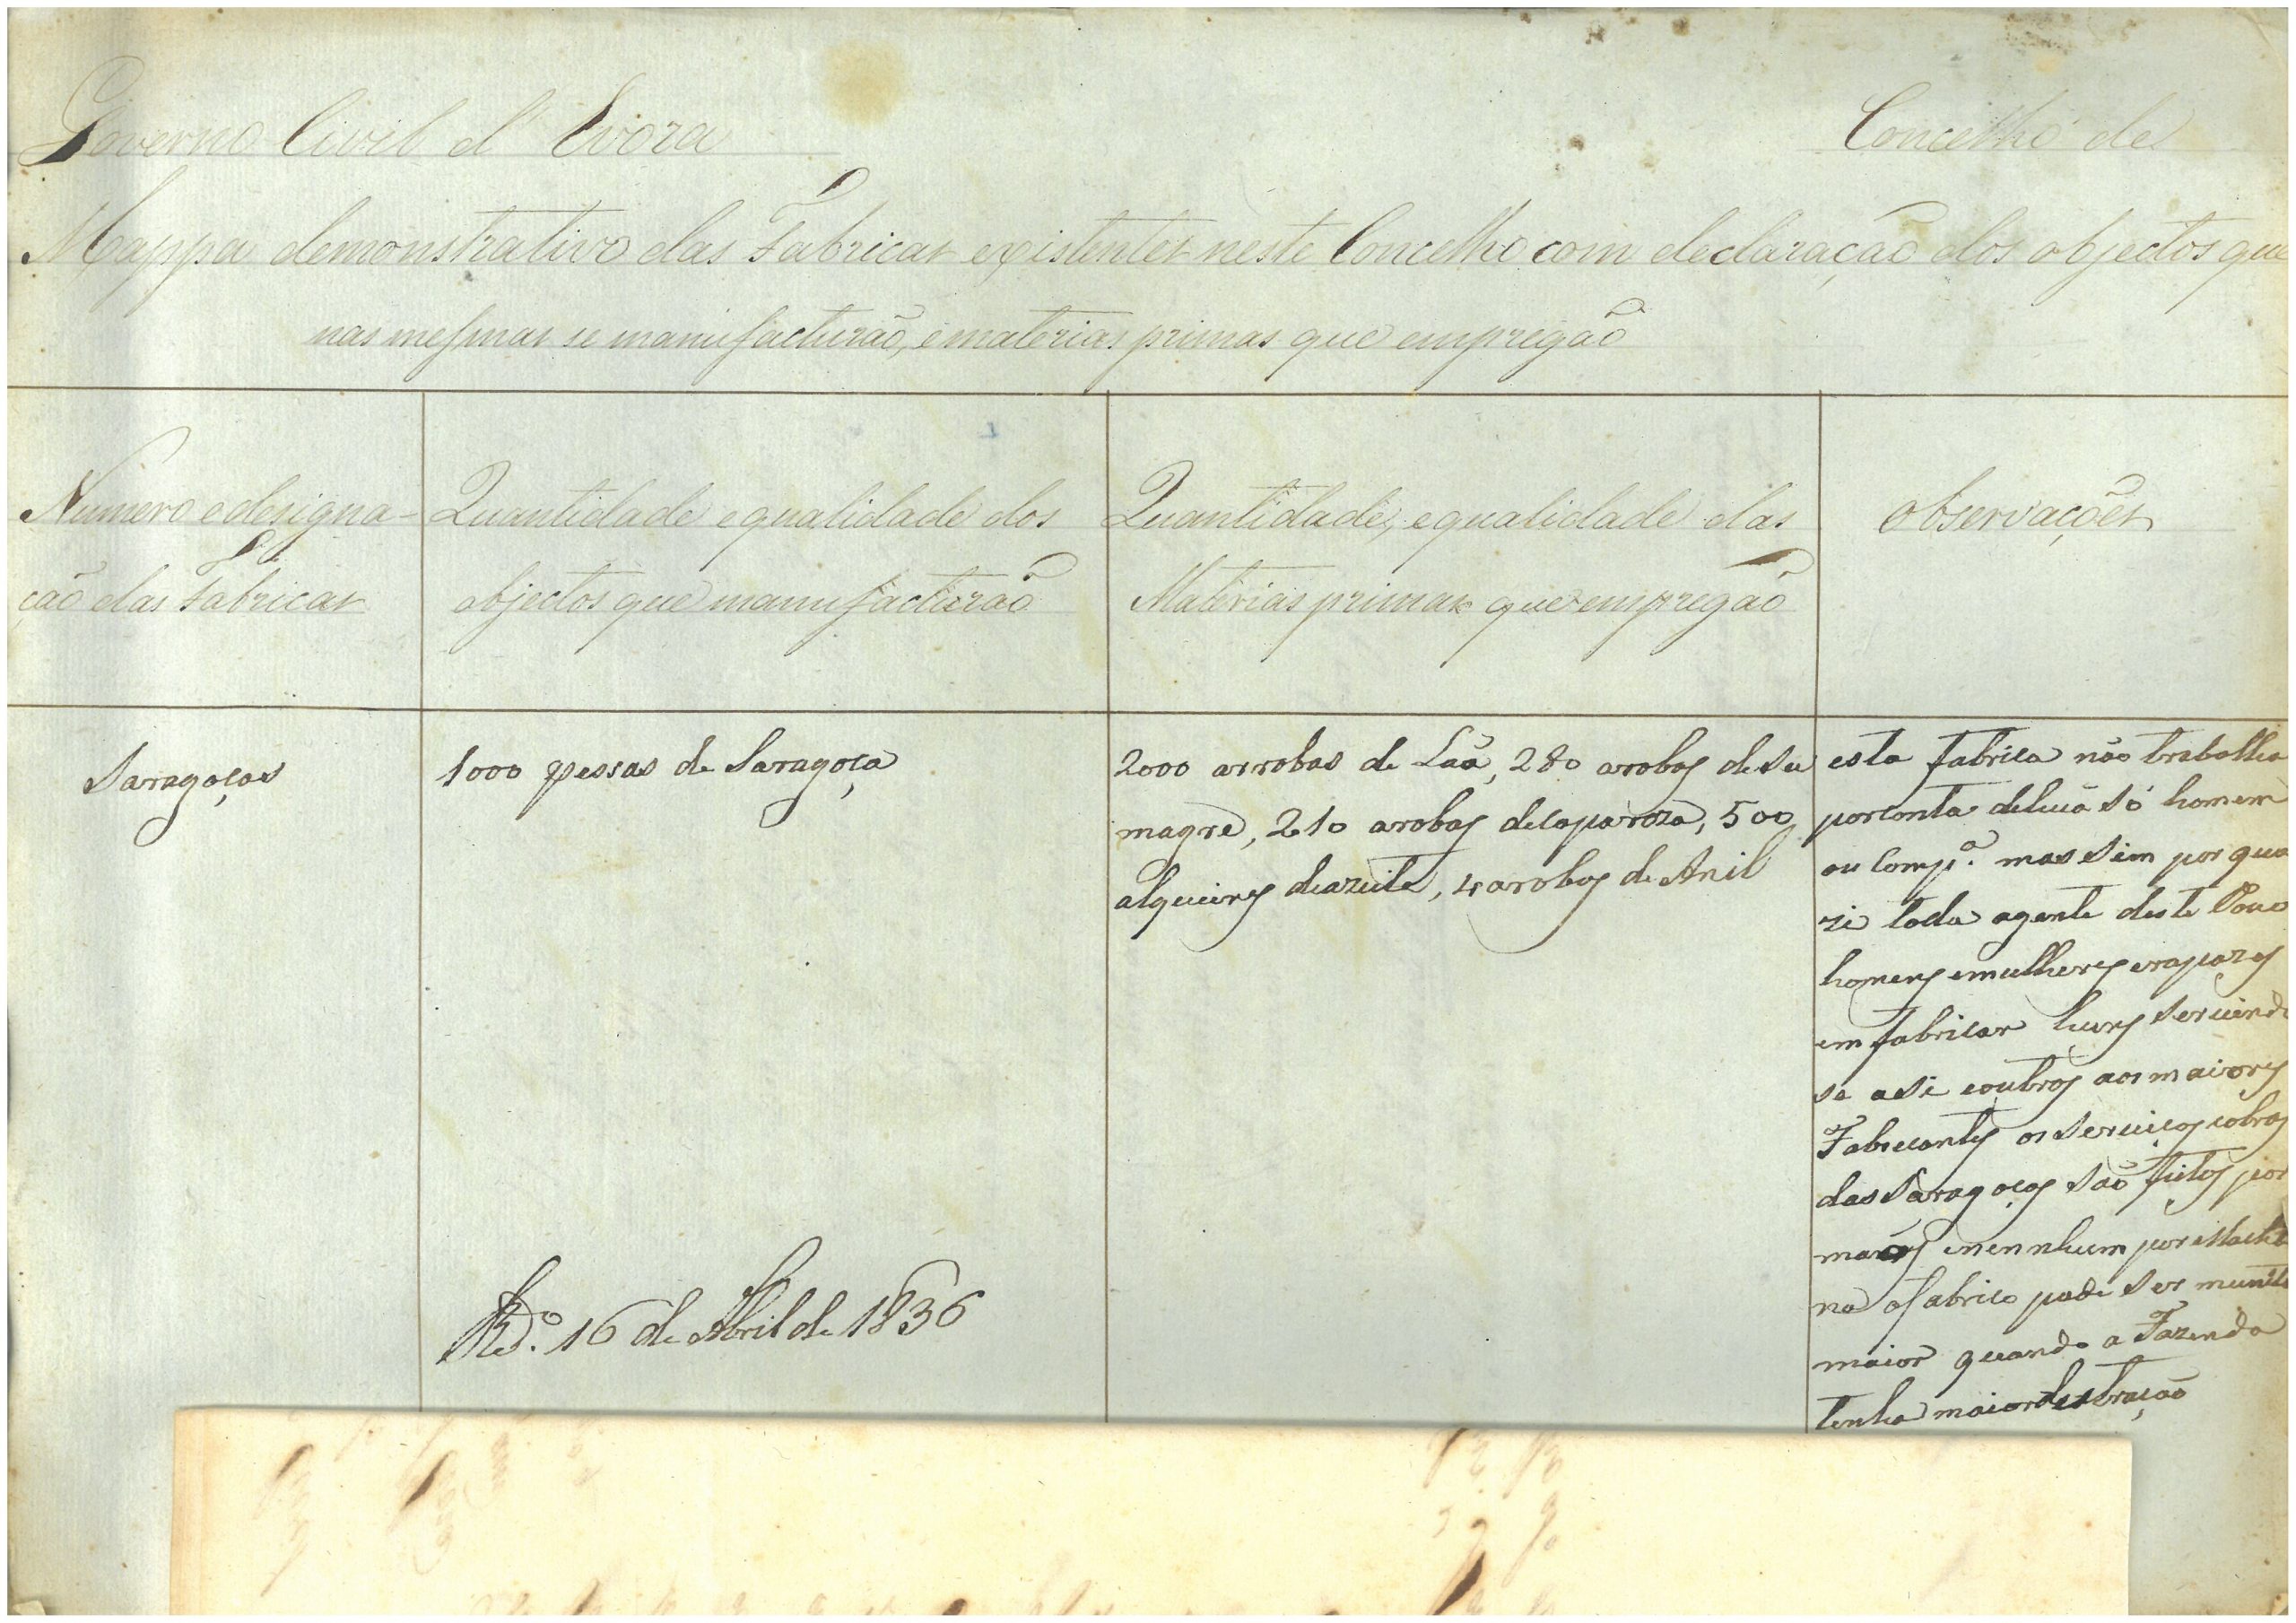 Governo Civil d'Evora
Concelho de
Mappa demonstrativo das Fabricas existentes neste Concelho com declaração dos objectos que
nas mesmas se manufacturão, e materias primas que empregão
Numero e designa-
ção das Fabricas
Quantidade e qualidade dos
objectos que manufacturão
Quantidade, e qualidade das
Materias primas que empregão
Observações
Saragoças
1000 pessas de Saragoça
2000 arrobas de Laã, 280 arobas de Su
magre, 210 arobas de caparoza, 500
alqueires de azeite, 4 arobas de Anil
esta fabrica não trabalha
por conta de huã só homem
ou Comp.ª mas sim por qua
zi toda a gente deste Povo
homens e mulheres e rapazes
em fabricar huns servindo
se a si e outros aos maiores
Fabricantes os serviços e obras
das Saragoças são feitos por
maõs e nenhum por
na o fabrico pode ser munto
maior quando a Fazenda
tenha maior destração
16 de Abril de 1836